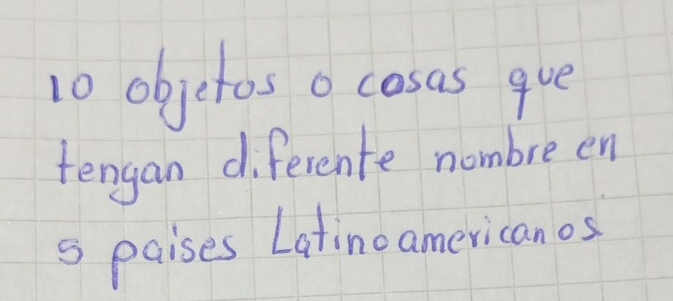 10 objetos o cosas que
tengan diferente nombre en
5 paises Latinoamericanos